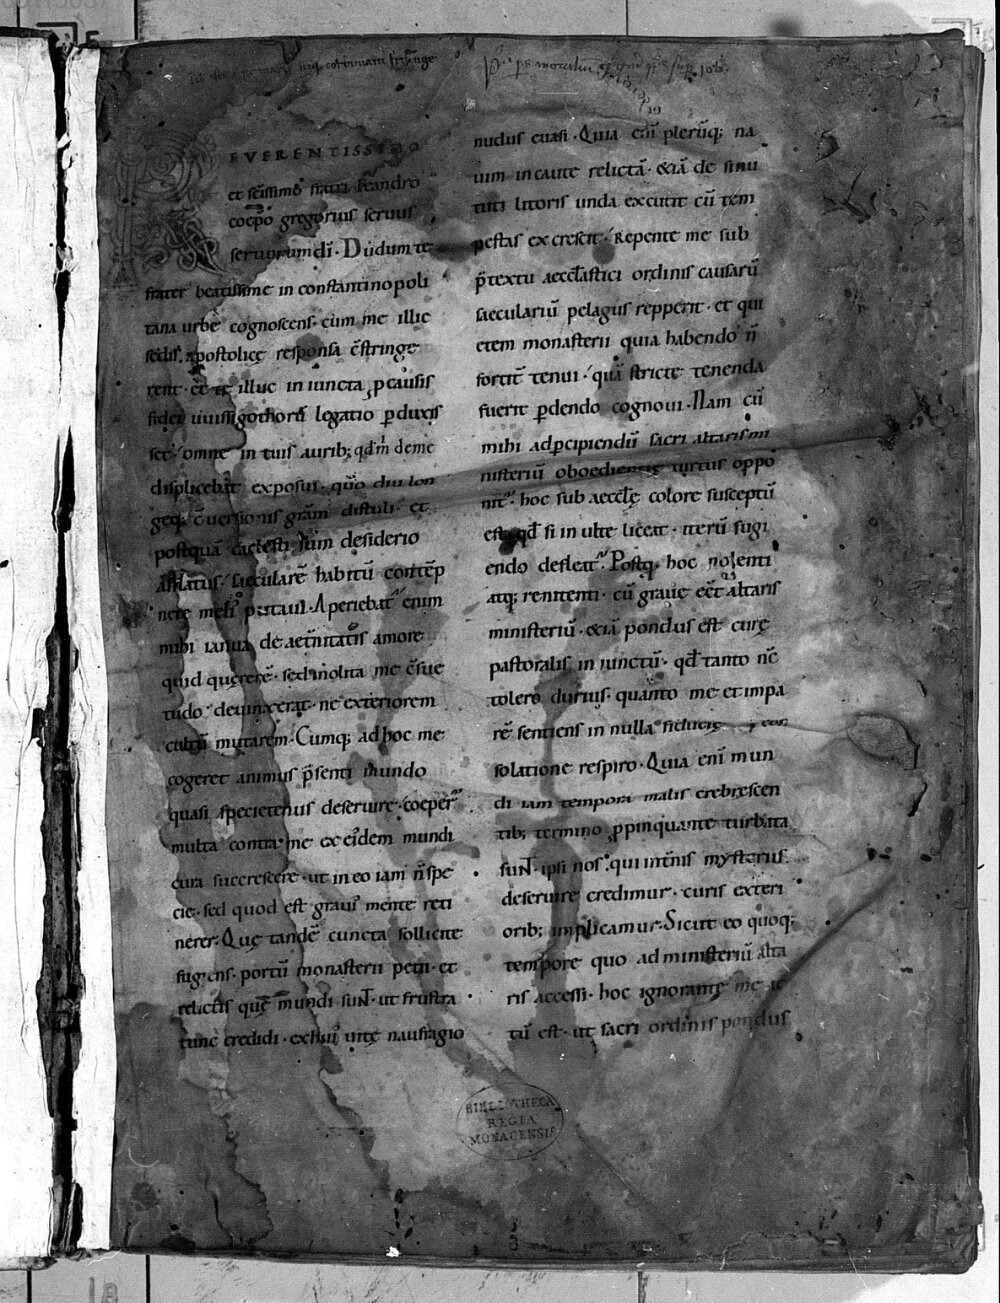 Iste liber est
corbiniani frisinge
Pa ps moraliu
sup iob
REVERENTISSIMO
et sc̄issimo fratri leandro
coep̄o gregorius seruus
seruorum dī· Dudum te
frater beatissime in constantinopoli
tana urbe cognoscens· cum me illic
sedis apostolicę responsa c̄stringe
rent· & te illuc iniuncta ꝓ causis
fidei uuisigothorū legatio ꝑduxis
set· omne in tuis aurib; qd̄ m̄ de me
displicebat exposui· quō diu lon
geq; c̄uersionis grām distuli· et
postquā cęlesti sum desiderio
afflatus· sęculare habitū contēp
nere meli' putaui· Aperiebat̄ enim
mihi ianua de aet̄nitatis amore
quid quęrerē· sed inolita me c̄sue
tudo deuinxerat· ne exteriorem
cultū mutarem· Cumq; adhoc me
cogeret animus p̄senti mundo
quasi specietenus deseruire· coeper̄
multa contra me ex eidem mundi
cura succrescere· ut in eo iam n̄ spe
cie· sed quod est graui' mente reti
nerer· Quę tandē cuncta sollicite
fugiens· portū monasterii petii· et
relictis quę mundi sunt· ut frustra
tunc credidi· ex hui' uitę naufragio
nudus euasi· Quia eni plerūq; na
uim incaute relictā· &iā de sinu
tuti litoris unda excutit cū tem
pestas excrescit· Repente me sub
p̄textu aeccl̄astici ordinis causarū
saeculariū pelagus repperit· et qui
etem monasterii quia habendo n̄
fortit̄ tenui· quā stricte tenenda
fuerit ꝑdendo cognoui· Nam cū
mihi adꝑcipiendū sacri altaris mi
nisteriū oboedientię uirtus oppo
nit̄· hoc sub aeccl̄ę colore susceptū
est· qd̄ si inulte liceat· iterū fugi
endo defleat̄· Postq; hoc nolenti
atq; renitenti· cū graue eēt altaris
ministeriū· &iā pondus est curę
pastoralis iniunctū· qd̄ tanto nc̄
tolero durius· quanto me et impa
rē sentiens in nulla fiducię con
solatione respiro· Quia eni mun
di iam tempora malis crebrescen
tib; termino ꝓpinquante turbata
sunt· ipsi nos· qui int̄nis mysteriis
deseruire credimur· curis exteri
orib; implicamur· Sicut eo quoq;
tempore quo ad ministeriū alta
ris accessi· hoc ignorante me ac
tū est· ut sacri ordinis pondus
BIBLIOTHECA
REGIA
MONACENSIS